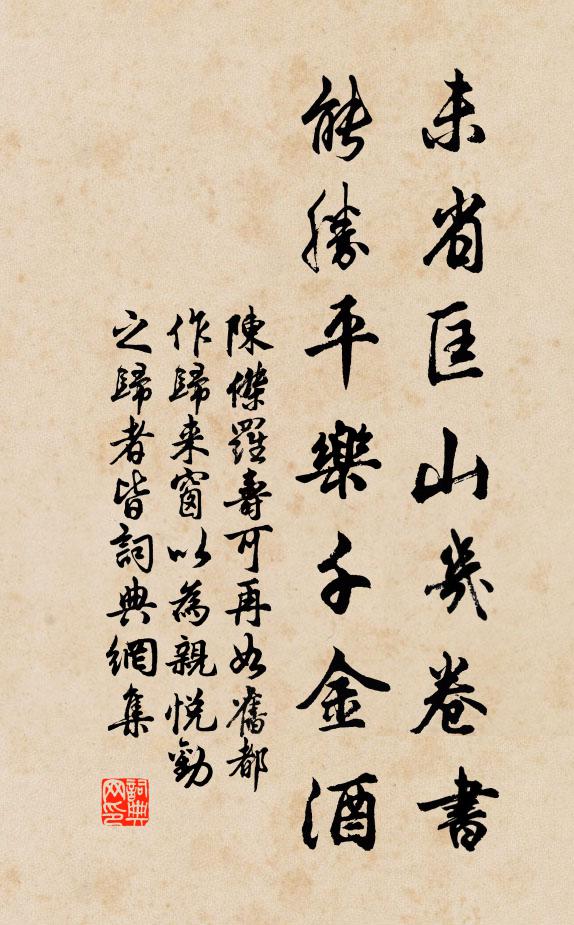 未省匡山幾卷書
能勝平樂千金酒
陳傑羅壽可再如舊都
作歸来窗以為親悅勸
之歸者皆詞典網集
詞典
网印